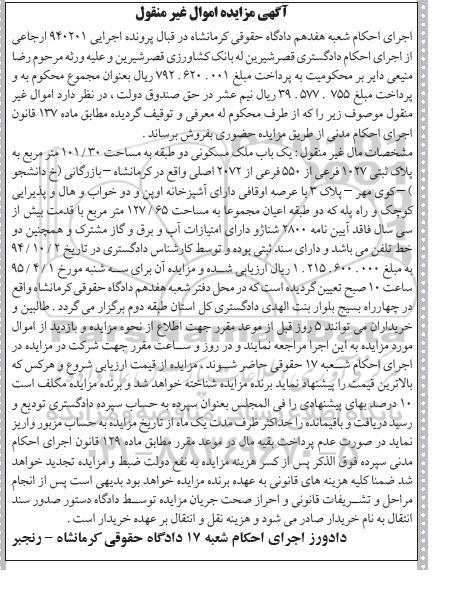 آگهی مزایده اموال غیر منقول
اجرای احکام شعبه هفدهم دادگاه حقوقی کرمانشاه در قبال پرونده اجرایی ۹۴۰۲۰۱ ارجاعی
از اجرای احکام دادگستری قصرشیرین له بانک کشاورزی قصرشیرین و علیه ورثه مرحوم رضا
منیعی دایر بر محکومیت به پرداخت مبلغ ۷۹۲.۶۲۰.۰۰۱ ریال بعنوان مجموع محکوم به و
پرداخت مبلغ ۳۹.۵۷۷.۷۵۵ ریال نیم عشر در حق صندوق دولت ، در نظر دارد اموال غیر
منقول موصوف زیر را که از طرف محکوم له معرفی و توقیف گردیده مطابق ماده ۱۳۷ قانون
اجرای احکام مدنی از طریق مزایده حضوری بفروش برساند .
مشخصات مال غیر منقول : یک باب ملک مسکونی دو طبقه به مساحت ۱۰۱/۳۰ متر مربع به
پلاک ثبتی ۱۰۲۷ فرعی از ۵۵۰ فرعی از ۲۰۷۲ اصلی واقع در کرمانشاه – بازرگانی (خ دانشجو
) –کوی مهر – پلاک ۳ با عرصه اوقافی دارای آشپزخانه اوپن و دو خواب و هال و پذیرایی
کوچک و راه پله که دو طبقه اعیان مجموعا به مساحت ۱۲۷/۶۵ متر مربع با قدمت بیش از
سی سال فاقد آیین نامه ۲۸۰۰ شناژو دارای امتیازات آب و برق و گاز مشترک و همچنین دو
خط تلفن می باشد و دارای سند ثبتی بوده و توسط کارشناس دادگستری در تاریخ ۹۴/۱۰/۲
به مبلغ ۱.۲۱۵.۶۰۰.۰۰۰ ریال ارزیابی شده و مزایده آن برای سه شنبه مورخ ۹۵/۴/۱
ساعت ۱۰ صبح تعیین گردیده است که در محل دفتر شعبه هفدهم دادگاه حقوقی کرمانشاه واقع
در چهارراه بسیج بلوار بنت الهدی دادگستری کل استان طبقه دوم برگزار می گردد . طالبین و
خریداران می توانند ۵ روز قبل از موعد مقرر جهت اطلاع از نحوه مزایده و بازدید از اموال
مورد مزایده به این اجرا مراجعه نمایند و در روز و ساعت مقرر جهت شرکت در مزایده در
اجرای احکام شعبه ۱۷ حقوقی حاضر شوند ، مزایده از قیمت ارزیابی شروع و هرکس که
بالاترین قیمت را پیشنهاد نماید برنده مزایده شناخته خواهد شد و برنده مزایده مکلف است
۱۰ درصد بهای پیشنهادی را فی المجلس بعنوان سپرده به حساب سپرده دادگستری تودیع و
رسید دریافت و باقیمانده را حداکثر ظرف مدت یک ماه از تاریخ مزایده به حساب مزبور واریز
نماید در صورت عدم پرداخت بقیه مال در موعد مقرر مطابق ماده ۱۲۹ قانون اجرای احکام
مدنی سپرده فوق الذکر پس از کسر هزینه مزایده به نفع دولت ضبط و مزایده تجدید خواهد
شد ضمنا کلیه هزینه های قانونی به عهده برنده مزایده خواهد بود بدیهی است پس از انجام
مراحل و تشریفات قانونی و احراز صحت جریان مزایده توسط دادگاه دستور صدور سند
انتقال به نام خریدار صادر می شود و هزینه نقل و انتقال بر عهده خریدار است .
دادورز اجرای احکام شعبه ۱۷ دادگاه حقوقی کرمانشاه – رنجبر